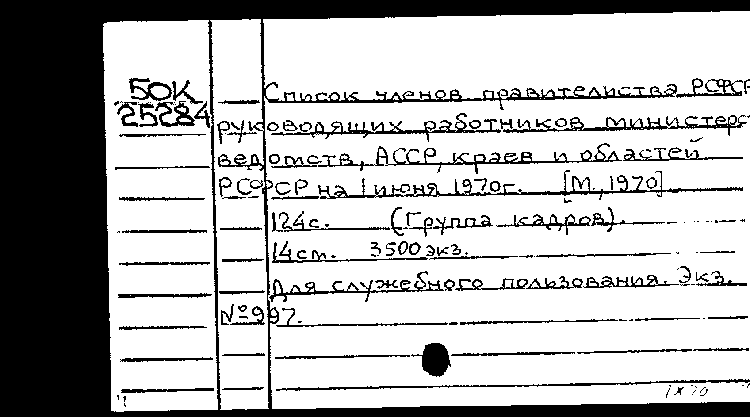 50К
25284
Список членов правительства РСФСР
руководящих работников министерс
ведомств, АССР, краев и областей
РСФСР на 1 июня 1970г. [М., 1970]
124с. (Группа кадров).
14см. 3500 экз.
Для служебного пользования. Экз.
№997.
1 X 70